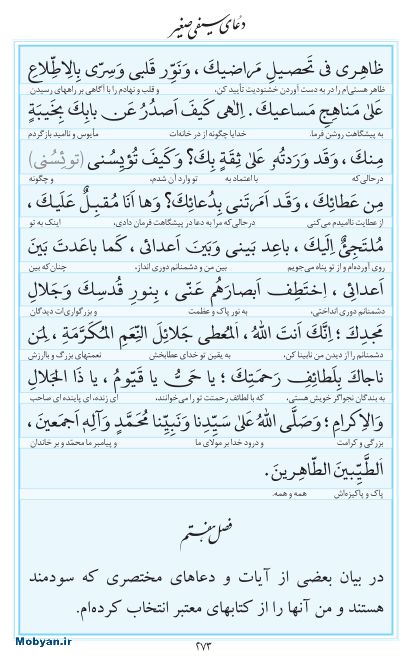 دعای سیفی صغیر
ظاهِری فی تَحصیلِ مَراضیكَ ، وَنَوِّر قَلبی وَسِرّی بِالاِطِّلاعِ
ظاهر هستی‌ام را در به دست آوردن خشنودیت تأیید کن، و قلب و نهادم را با آگاهی بر راههای رسیدن
عَلیٰ مَناهِجِ مَساعیكَ . اِلٰهی كَیفَ اَصدُرُ عَن بابِكَ بِخَیبَةٍ
به پیشگاهت روشن فرما. خدایا چگونه از در خانه‌ات مأیوس و ناامید بازگردم
مِنكَ ، وَقَد وَرَدتُهُ عَلیٰ ثِقَةٍ بِكَ؟ وَكَیفَ تُؤیِسُنی (توئِسُنی)
درحالی‌که با اعتماد به تو وارد آن شدم، و چگونه
مِن عَطائِكَ ، وَقَد اَمَرتَنی بِدُعائِكَ؟ وَها اَنَا مُقبِلٌ عَلَیكَ ،
از عطایت ناامیدم می‌کنی درحالی‌که مرا به دعا در پیشگاهت فرمان دادی، اینک به تو
مُلتَجِئٌ اِلَیكَ ، باعِد بَینی وَبَینَ اَعدائی ، كَما باعَدتَ بَینَ
روی آورده‌ام و از تو پناه می‌جویم بین من و دشمنانم دوری انداز، چنان‌که بین
اَعدائی ، اِختَطِف اَبصارَهُم عَنّی ، بِنورِ قُدسِكَ وَجَلالِ
دشمنانم دوری انداختی، به نور پاک و عظمت و بزرگواری‌ات دیدگان
مَجدِكَ ؛ اِنَّكَ اَنتَ اللهُ ، اَلمُعطی جَلائِلَ النِّعَمِ المُكَرَّمَةِ ، لِمَن
دشمنانم را از دیدن من نابینا کن، به یقین تو خدای عطابخش نعمتهای بزرگ و باارزش
ناجاكَ بِلَطائِفِ رَحمَتِكَ ؛ یا حَیُّ یا قَیّومُ ، یا ذَا الجَلالِ
به بندگان نجواگر خویش هستی، که با لطائف رحمتت تو را می‌خوانند، ای زنده، ای پاینده ای صاحب
وَالاِكرامِ ؛ وَصَلَّی اللهُ عَلیٰ سَیِّدِنا وَنَبِیِّنا مُحَمَّدٍ وَآلِهِ اَجمَعینَ ،
بزرگی و کرامت و درود خدا بر مولای ما و پیامبر ما محمّد و بر خاندان
اَلطَّیِّبینَ الطّاهِرینَ .
پاک و پاکیزه‌اش همه و همه.
فصل هفتم
در بیان بعضی از آیات و دعاهای مختصری که سودمند
هستند و من آنها را از کتابهای معتبر انتخاب کرده‌ام.
۲۷۳
Mobyan.ir